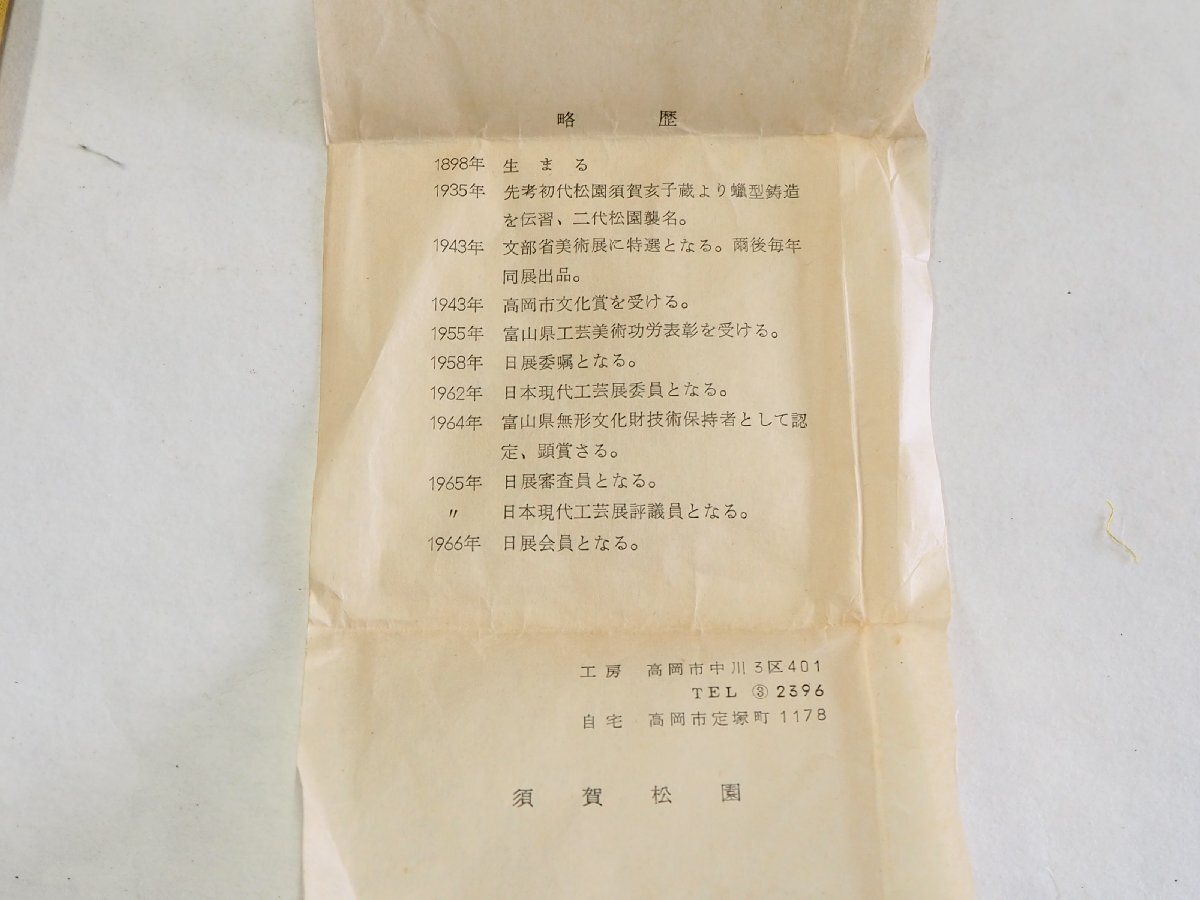 略 歴
1898年 生まる
1935年 先考初代松園須賀亥子蔵より蠟型鋳造
を伝習、二代松園襲名。
1943年 文部省美術展に特選となる。爾後毎年
同展出品。
1943年 高岡市文化賞を受ける。
1955年 富山県工芸美術功労表彰を受ける。
1958年 日展委嘱となる。
1962年 日本現代工芸展委員となる。
1964年 富山県無形文化財技術保持者として認
定、顕賞さる。
1965年 日展審査員となる。
〃 日本現代工芸展評議員となる。
1966年 日展会員となる。
工房 高岡市中川3区401
TEL ③ 2396
自宅 高岡市定塚町1178
須賀松園